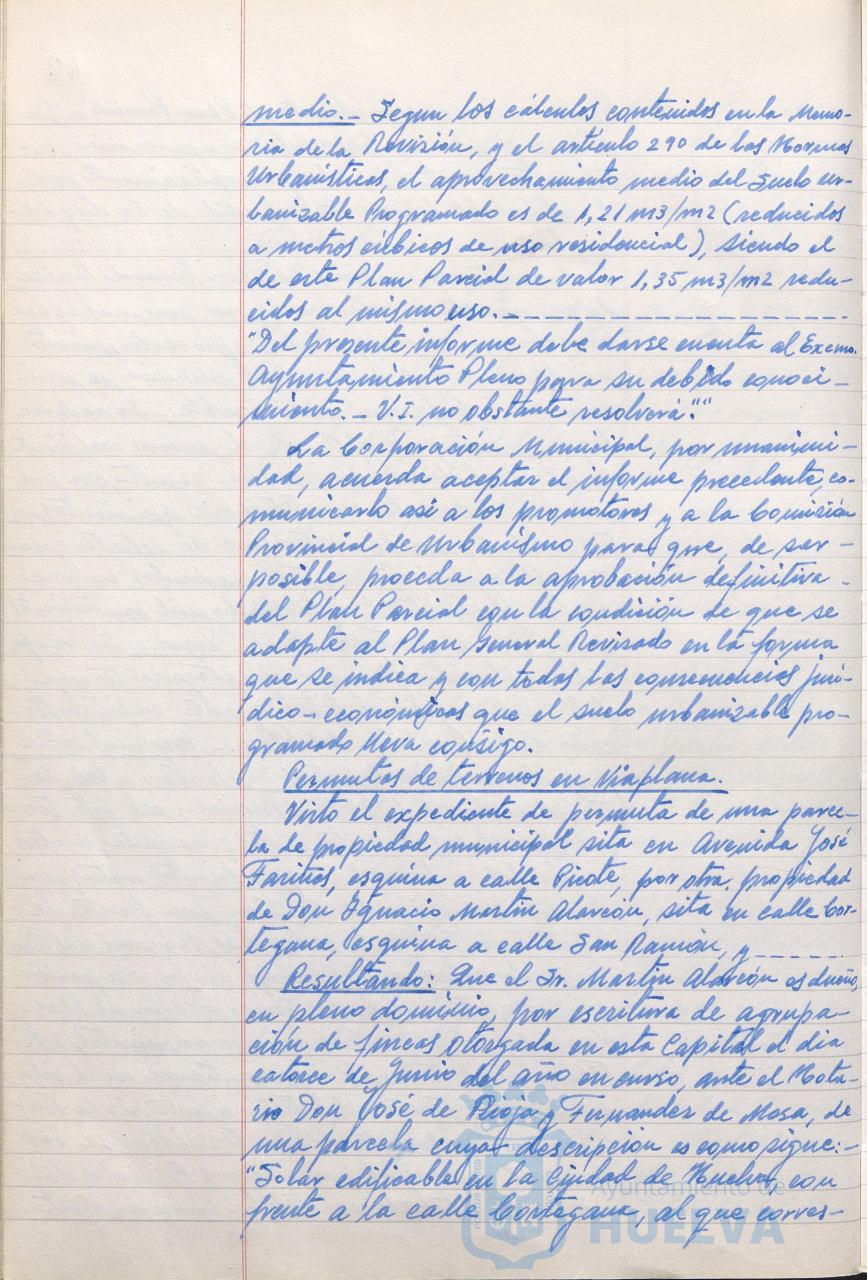 medio.- Segun los cálculos contenidos en la Memo-
ria de la Revisión, y el artículo 290 de las Normas
Urbanísticas, el aprovechamiento medio del Suelo ur-
banizable Programado es de 1,21 m3/m2 (reducidos
a metros cúbicos de uso residencial), siendo el
de este Plan Parcial de valor 1,35 m3/m2 redu-
cidos al mismo uso.-
"Del presente informe debe darse cuenta al Excmo.
Ayuntamiento Pleno para su debido conoci-
miento.- V.I. no obstante resolverá".""
La Corporación Municipal, por unanimi-
dad, acuerda aceptar el informe precedente, co-
municarlo así a los promotores y a la Comisión
Provincial de Urbanismo para que, de ser-
posible, proceda a la aprobación definitiva-
del Plan Parcial con la condición de que se
adapte al Plan General Revisado en la forma
que se indica y con todas las consecuencias jurí-
dico-económicas que el suelo urbanizable pro-
gramado lleva consigo.
Permutas de terrenos en Viaplana.
Visto el expediente de permuta de una parce-
la de propiedad municipal sita en Avenida José
Fariñas, esquina a calle Picote, por otra, propiedad
de Don Ignacio Martín Alarcón, sita en calle Cor-
tegana, esquina a calle San Ramón, y
Resultando: Que el Sr. Martín Alarcón es dueño,
en pleno dominio, por escritura de agrupa-
ción de fincas otorgada en esta Capital el dia
catorce de Junio del año en curso, ante el Nota-
rio Don José de Rioja y Fernandez de Mesa, de
una parcela cuya descripción es como sigue:-
"Solar edificable en la Ciudad de Huelva, con
frente a la calle Cortegana, al que corres-
Ayuntamiento de
HUELVA